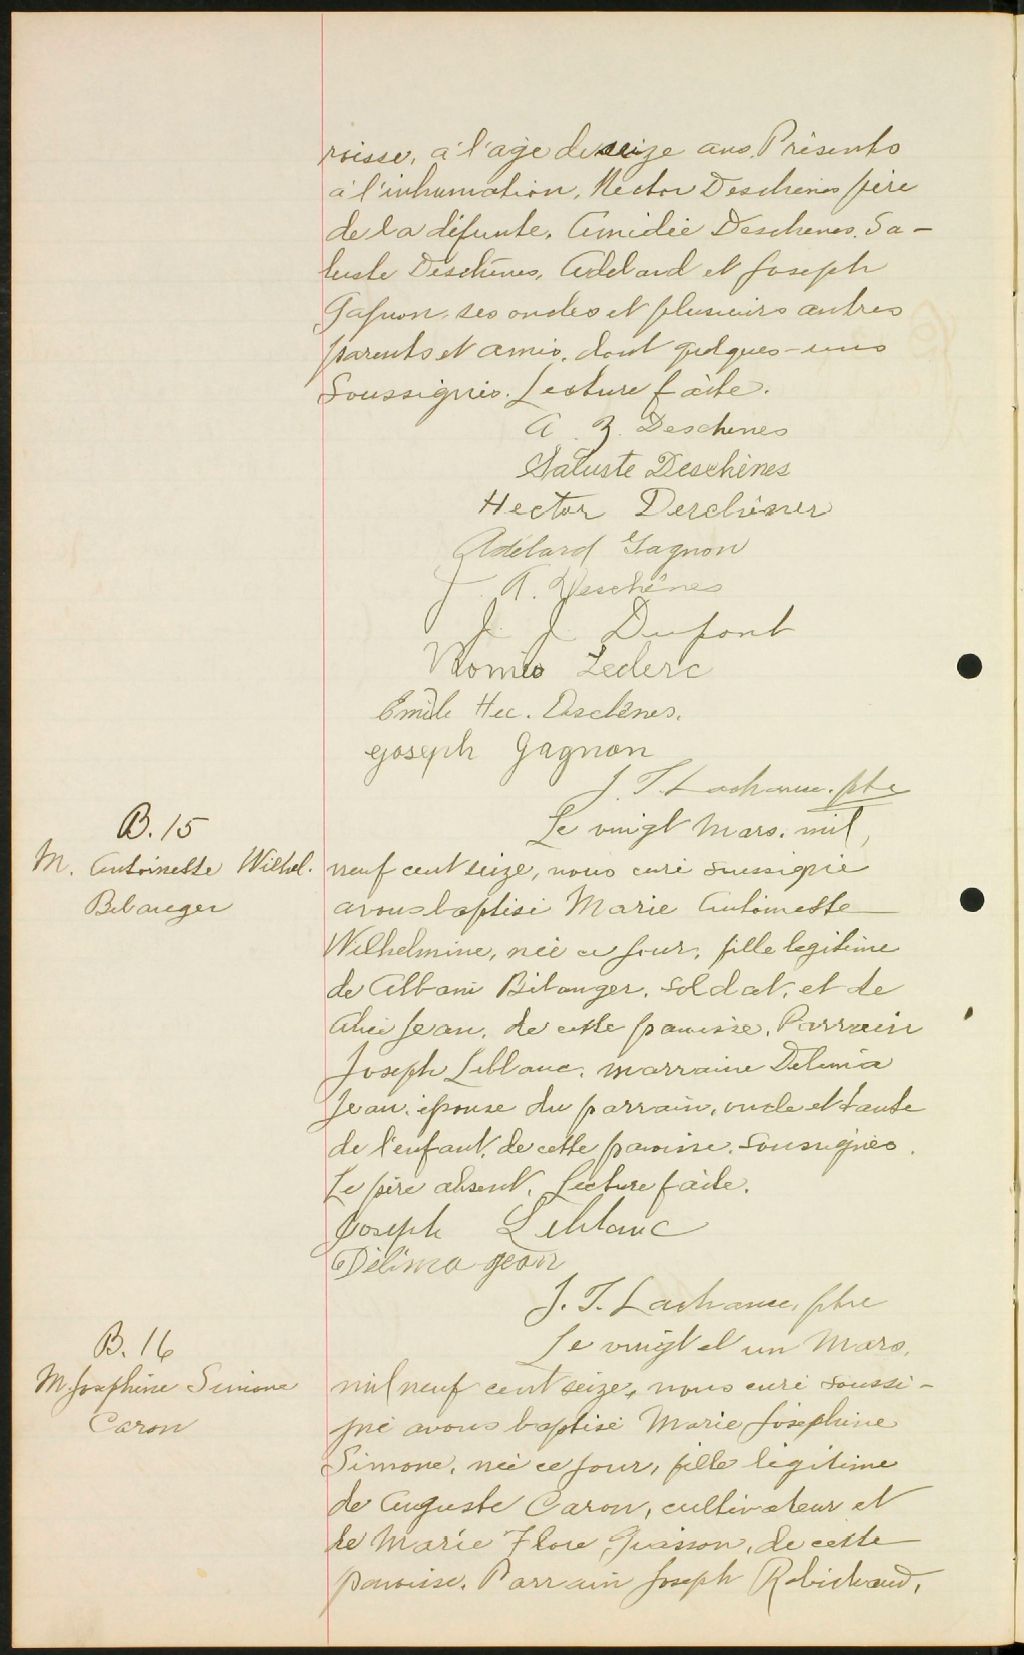 roisse, à l'age de seize ans. Présents
à l'inhumation, Hector Deschenes père
de la défunte. Amédée Deschenes, Sa-
luste Deschênes, Adélard et Joseph
Gagnon, ses oncles et plusieurs autres
parents et amis, dont quelques-uns
Soussignés. Lecture faite.
A. Z. Deschenes
Saluste Deschènes
Hector Deschènes
Adélard Gagnon
J. A. Deschênes
J. J. Dupont
Roméo Leclerc
Emile Hec. Deschênes.
Joseph Gagnon
J. T. Lachance. ptre
B. 15
M. Antoinette Wilhel.
Belanger
Le vingt Mars, mil,
neuf cent seize, nous curé soussigné
avons baptisé Marie Antoinette
Wilhelmine, née ce jour, fille legitime
de Albani Bélanger, soldat, et de
Alice Jean, de cette paroisse. Parrain
Joseph Leblanc, marraine Delima
Jean, épouse du parrain, oncle et tante
de l'enfant, de cette paroisse. Soussignés.
Le père absent. Lecture faite.
Joseph Leblanc
Délima Jean
J. T. Lachance, ptre
B. 16
M. Josephine Simone
Caron
Le vingt et un Mars,
mil neuf cent seize, nous curé soussi-
gné avons baptisé Marie Joséphine
Simone, née ce jour, fille légitime
de Auguste Caron, cultivateur et
de Marie Flore Guasson, de cette
paroisse. Parrain Joseph Robichaud,